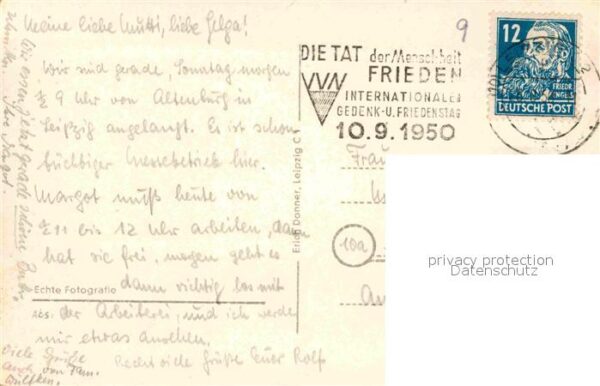 Meine liebe Mutti, liebe Helga!
Wir sind gerade, Sonntag morgen
½ 9 Uhr von Altenburg in
Leipzig angelangt. Es ist schon
tüchtiger Messebetrieb hier.
Margot muß heute von
½11 bis 12 Uhr arbeiten, dann
hat sie frei, morgen geht es
dann richtig los mit
Echte Fotografie
Abs: der Arbeiterei, und ich werde
mir etwas ansehen.
Recht viele Grüße Euer Rolf
Viele Grüße
auch von Fam.
Wir essen jetzt gerade
Eure Margot.
Erich Donner, Leipzig C
9
DIE TAT der Menschheit
FRIEDEN
VVN
INTERNATIONALER
GEDENK-U. FRIEDENSTAG
10.9.1950
12
FRIEDR.
ENGELS
DEUTSCHE POST
Frau
(10a)
privacy protection
Datenschutz